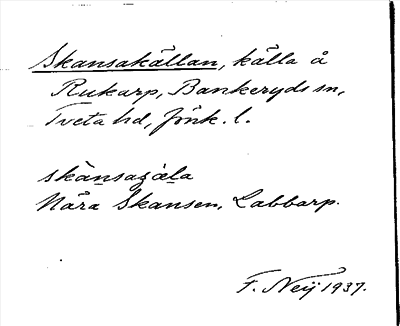 Skansakällan, källa å
Rukarp, Bankeryds sn,
Tveta hd, Jönk. l.
skànsaʒæla
Nära Skansen, Labbarp.
F. Neij 1937.